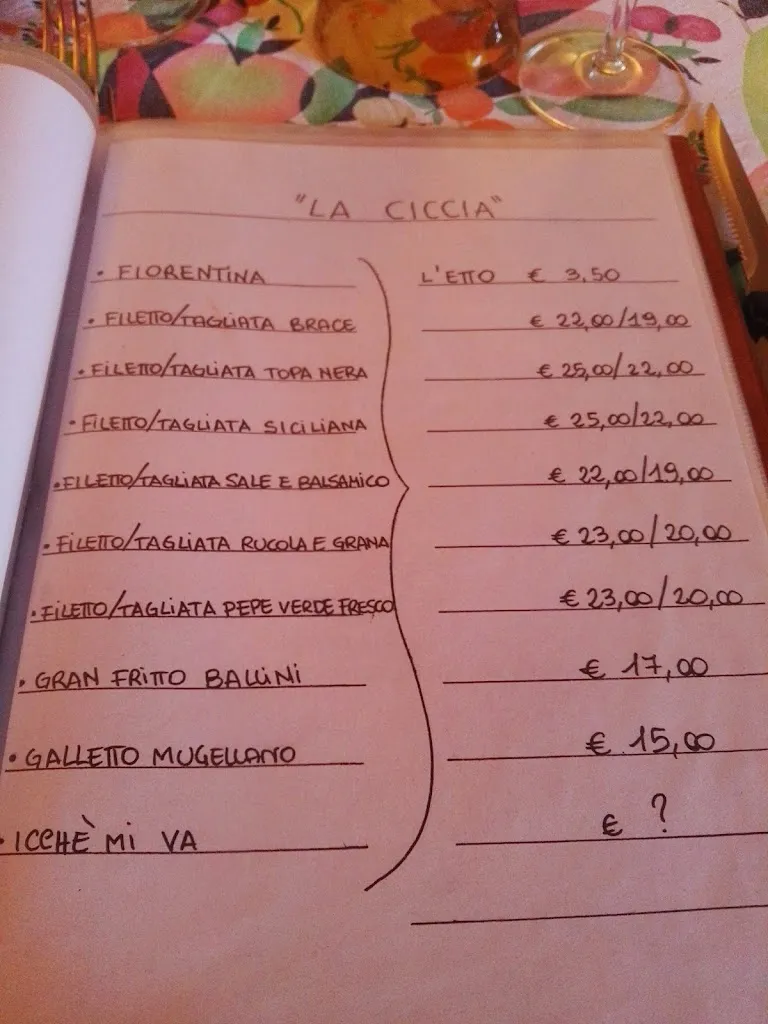 "LA CICCIA"
• FIORENTINA L'ETTO € 3,50
• FILETTO/TAGLIATA BRACE € 22,00/19,00
• FILETTO/TAGLIATA TOPA NERA € 25,00/22,00
• FILETTO/TAGLIATA SICILIANA € 25,00/22,00
• FILETTO/TAGLIATA SALE E BALSAMICO € 22,00/19,00
• FILETTO/TAGLIATA RUCOLA E GRANA € 23,00/20,00
• FILETTO/TAGLIATA PEPE VERDE FRESCO € 23,00/20,00
• GRAN FRITTO BALLINI € 17,00
• GALLETTO MUGELLANO € 15,00
• ICCHÈ MI VA € ?